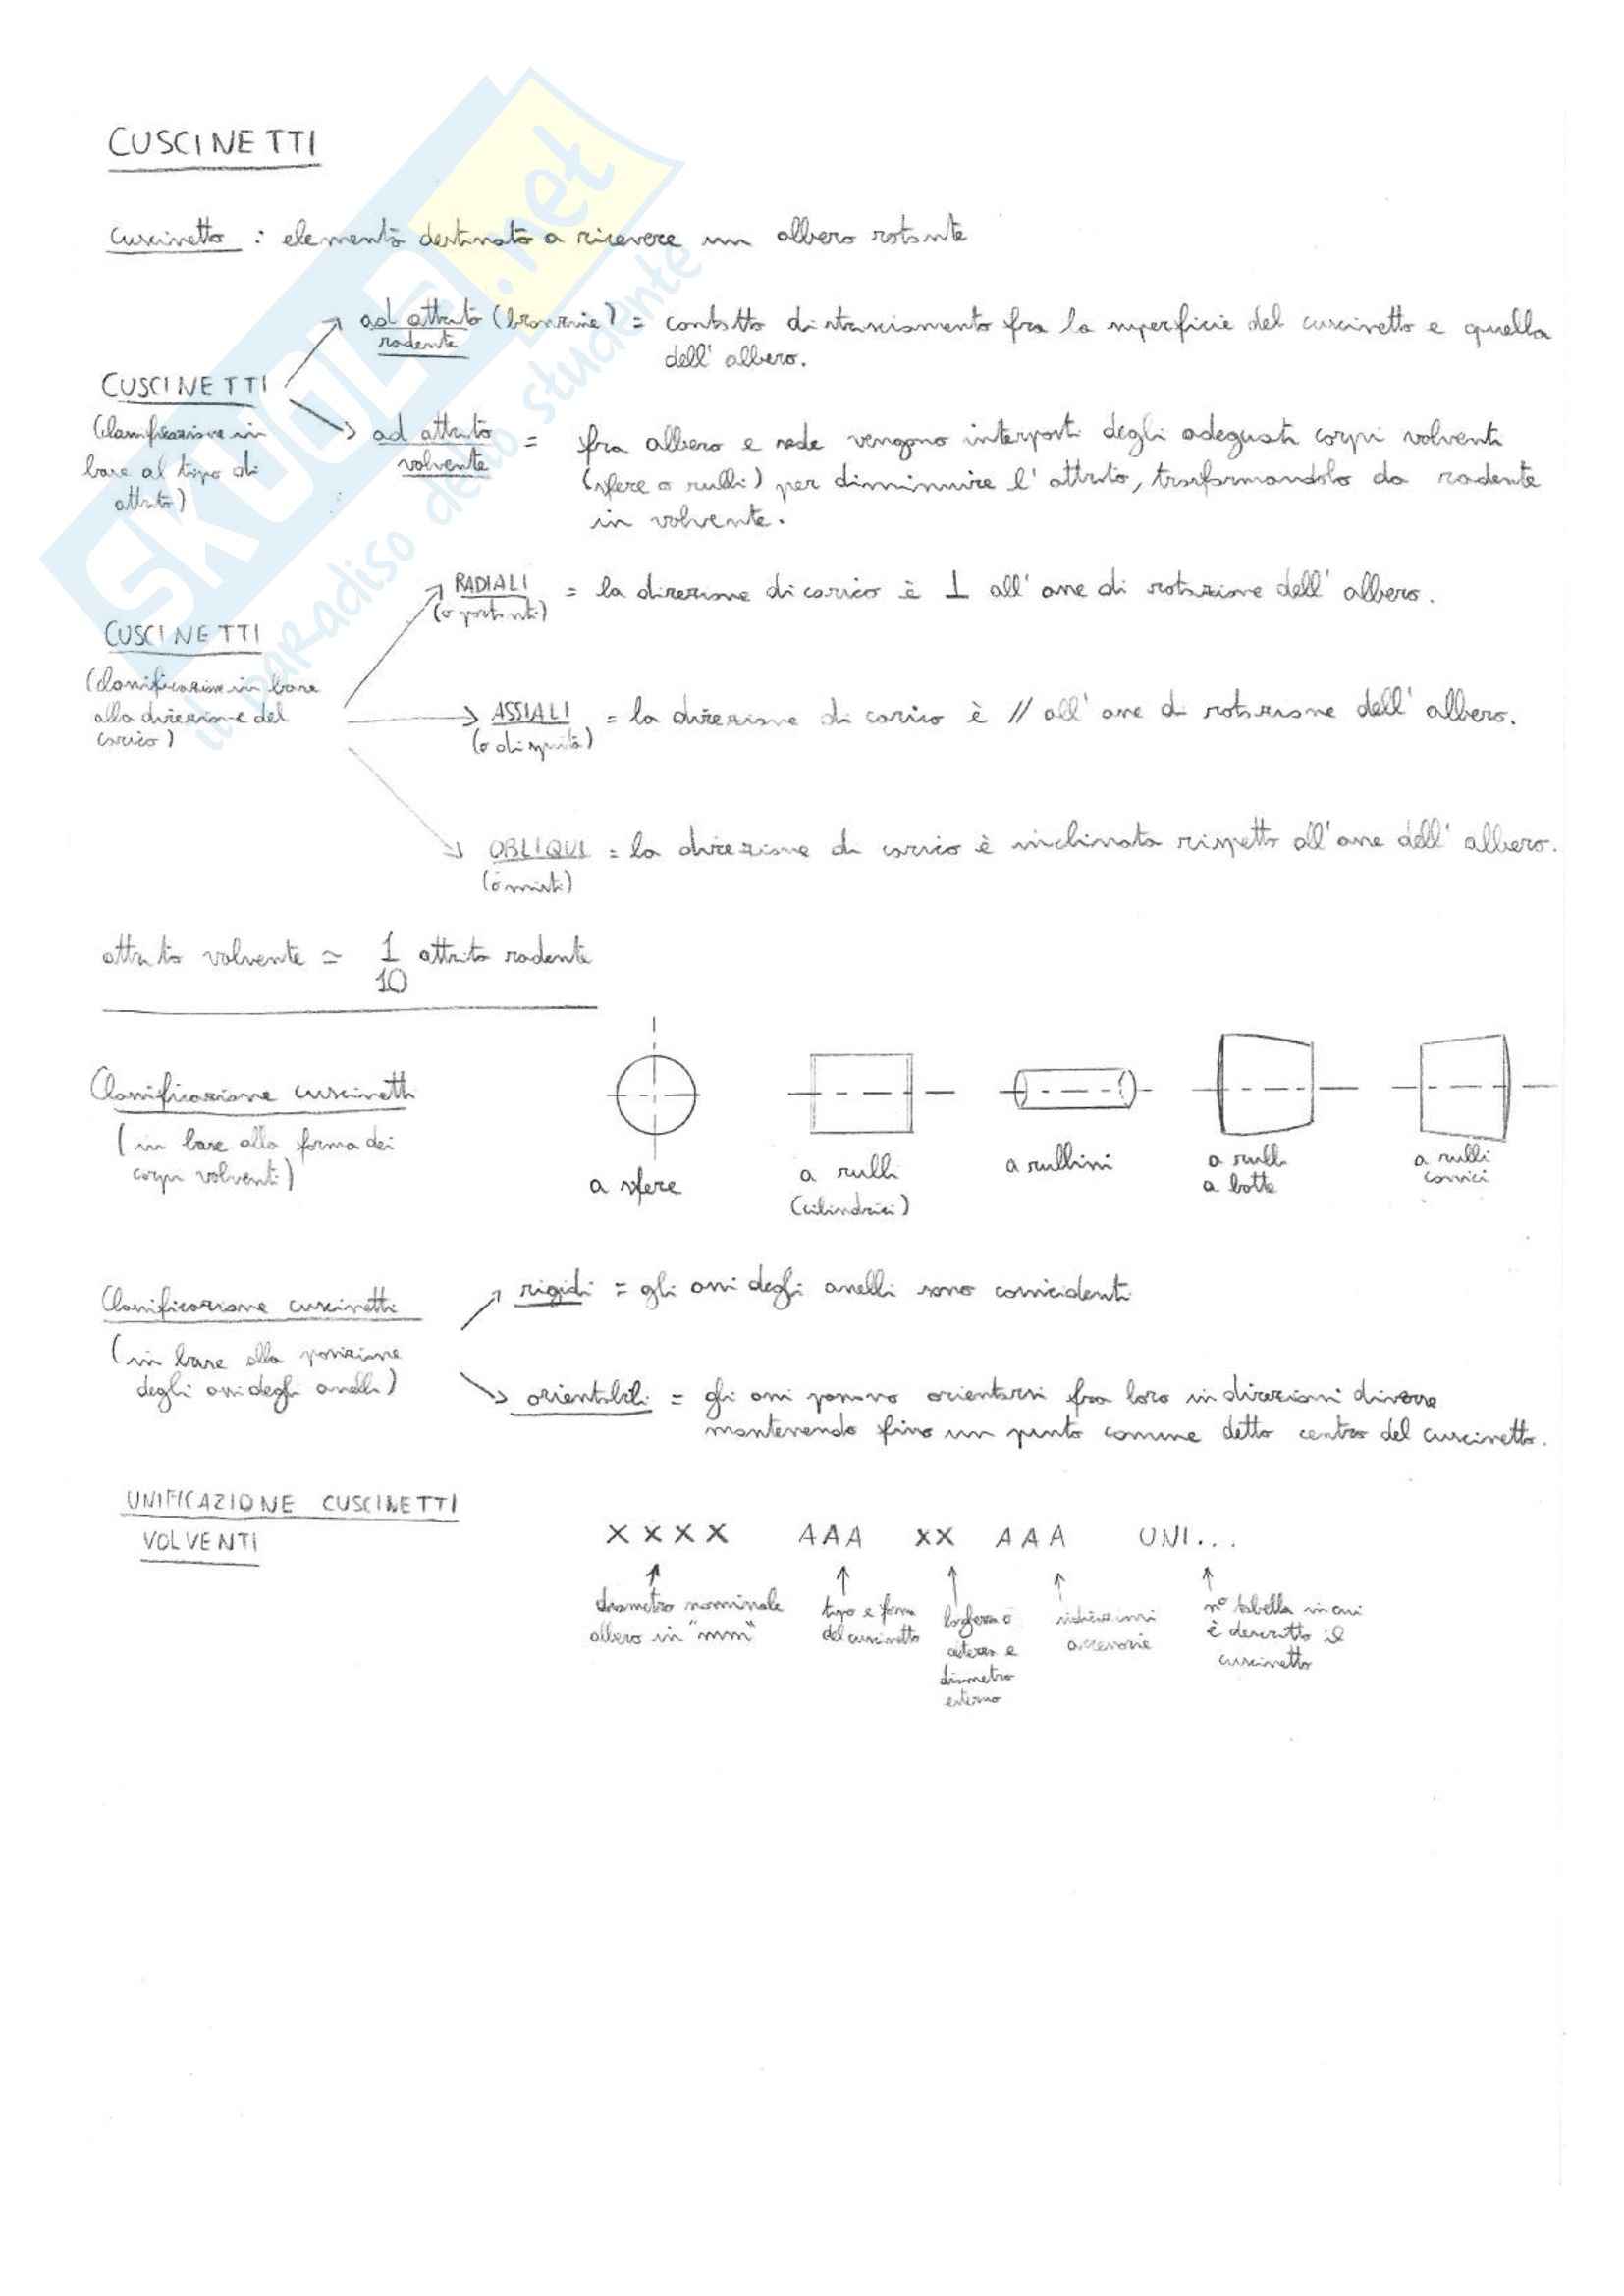 CUSCINETTI
cuscinetto : elemento destinato a ricevere un albero rotante
ad attrito (bronzine) = contatto di strisciamento fra la superficie del cuscinetto e quella
radente
dell' albero.
CUSCINETTI
(classificazione in
base al tipo di
attrito)
ad attrito = fra albero e sede vengono interposti degli adeguati corpi volventi
volvente
(sfere o rulli) per diminuire l' attrito, trasformandolo da radente
in volvente.
RADIALI = la direzione di carico è ⊥ all' asse di rotazione dell' albero.
(o portanti)
CUSCINETTI
(classificazione in base
alla direzione del
carico)
ASSIALI = la direzione di carico è // all' asse di rotazione dell' albero.
(o di spinta)
OBLIQUI = la direzione di carico è inclinata rispetto all' asse dell' albero.
(o misti)
attrito volvente ≃ 1/10 attrito radente
Classificazione cuscinetti
(in base alla forma dei
corpi volventi)
a sfere
a rulli
(cilindrici)
a rullini
a rulli
a botte
a rulli
conici
Classificazione cuscinetti
(in base alla posizione
degli assi degli anelli)
rigidi = gli assi degli anelli sono coincidenti
orientabili = gli assi possono orientarsi fra loro in direzioni diverse
mantenendo fisso un punto comune detto centro del cuscinetto.
UNIFICAZIONE CUSCINETTI
VOLVENTI
XXXX AAA XX AAA UNI...
diametro nominale
albero in "mm"
tipo e forma
del cuscinetto
larghezza o
altezza e
diametro
esterno
indicazioni
accessorie
n° tabella in cui
è descritto il
cuscinetto
SKUOLA.net
il paradiso dello studente